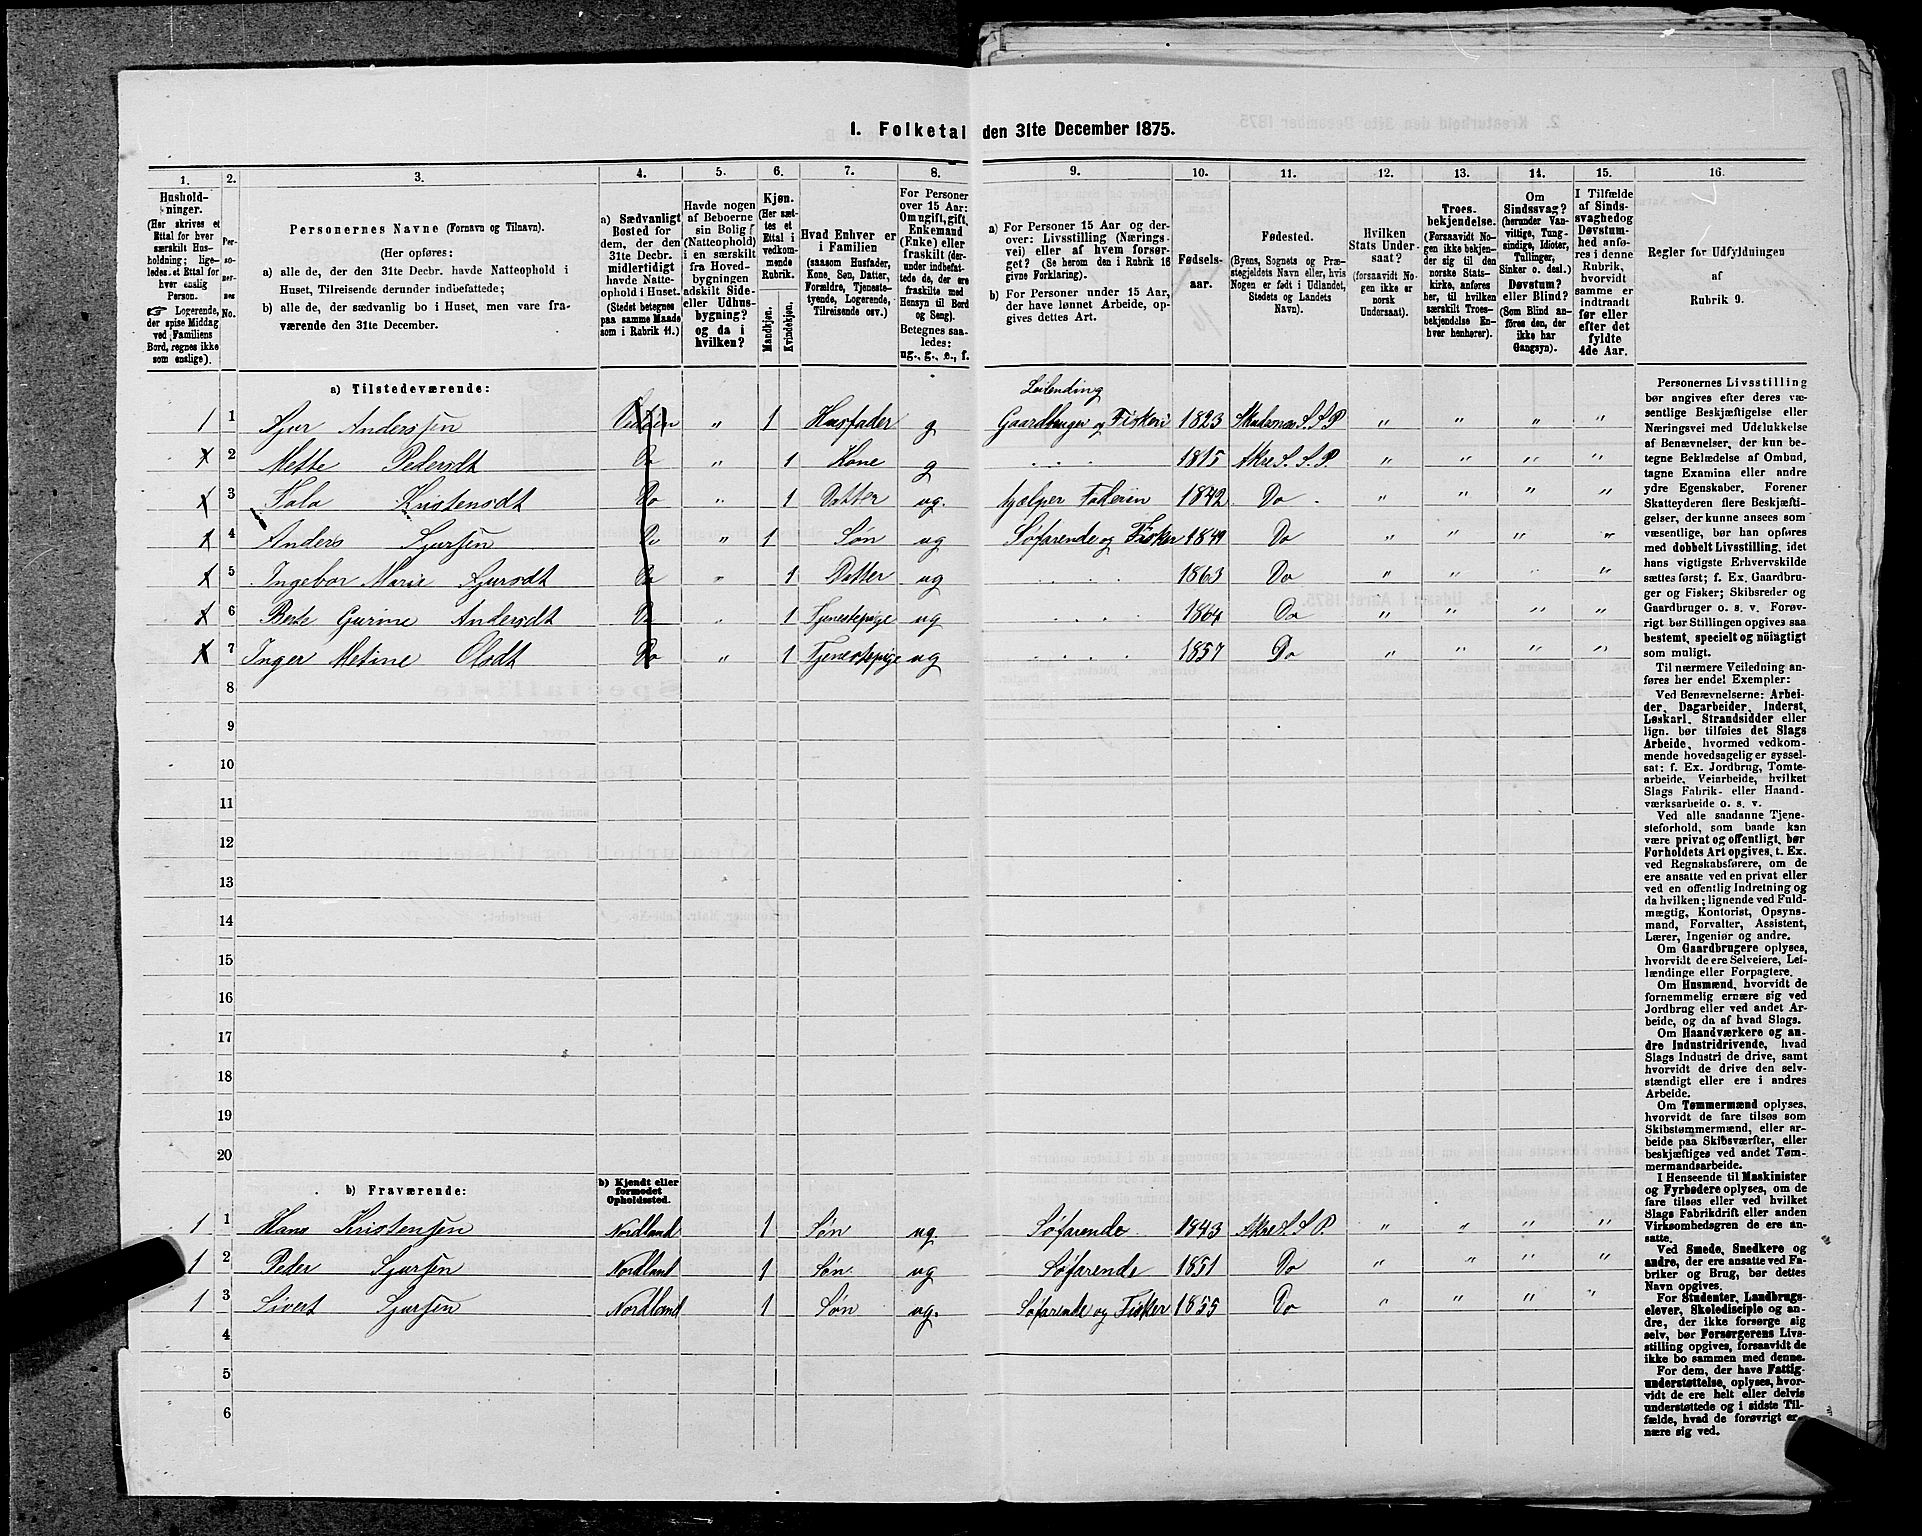 1. Folketal den 31te December 1875.
1. 2. 3. 4. 5. 6. 7. 8. 9. 10. 11. 12. 13. 14. 15. 16.
Hushold-
ninger.
(Her skrives et
Ettal for hver
særskilt Hus-
holdning; lige-
ledes et Ettal for
hver enslig
Person.
☞ Logerende,
der spise Middag
ved Familiens
Bord, regnes ikke
som enslige).
Per-
so-
ner-
nes
No.
Personernes Navne (Fornavn og Tilnavn).
(Her opføres:
a) alle de, der den 31te Decbr. havde Natteophold i
Huset, Tilreisende derunder indbefattede;
b) alle de, der sædvanlig bo i Huset, men vare fra-
værende den 31te December.
a) Sædvanligt
Bosted for
dem, der den
31te Decbr.
midlertidigt
havde Natte-
ophold i Huset.
(Stedet betegnes
paa samme Maade
som i Rubrik 11.)
Havde nogen
af Beboerne
sin Bolig
(Natteophold)
i en særskilt
fra Hoved-
bygningen
adskilt Side-
eller Udhus-
bygning?
og da i
hvilken?
Kjøn.
(Her sæt-
tes et
Ettal i
vedkom-
mende
Rubrik.
Mandkjøn.
Kvindekjøn.
Hvad Enhver er
i Familien
(saasom Husfader,
Kone, Søn, Datter,
Forældre, Tjeneste-
tyende, Logerende,
Tilreisende osv.)
For Personer
over 15 Aar:
Om ugift, gift,
Enkemand
(Enke) eller
fraskilt (der-
under indbefat-
tede de, der ere
fraskilte med
Hensyn til Bord
og Seng).
Betegnes saa-
ledes:
ug., g., e., f.
a) For Personer 15 Aar og der-
over: Livsstilling (Nærings-
vei) eller af hvem forsør-
get? (Se herom den i Rubrik 16
givne Forklaring).
b) For Personer under 15 Aar,
der have lønnet Arbeide, op-
gives dettes Art.
Fødsels-
aar.
Fødested.
(Byens, Sognets og Præ-
stegjeldets Navn eller, hvis
Nogen er født i Udlandet,
Stedets og Landets
Navn).
Hvilken
Stats Under-
saat?
(forsaavidt No-
gen ikke er
norsk
Undersaat).
Troes-
bekjendelse.
(Forsaavidt No-
gen ikke bekjen-
der sig til den
norske Stats-
kirke, anføres
her, til hvilken
særskilt Troes-
bekjendelse En-
hver henhører).
Om
Sindssvag?
(herunder Van-
vittige, Tung-
sindige, Idioter,
Tullinger,
Sinker o. desl.)
Døvstum?
eller Blind?
(Som Blind an-
føres den, der
ikke har
Gangsyn).
I Tilfælde
af Sinds-
svaghed og
Døvstum-
hed anfø-
res i denne
Rubrik,
hvorvidt
samme er
indtraadt
før eller
efter det
fyldte
4de Aar.
Regler for Udfyldningen
af
Rubrik 9.
a) Tilstedeværende:
Leilending
1 1 Sjur Andersen " 1 Husfader g Gaardbruger og Fiskeri 1823 S. S. P " " " "
2 Mette Pedersdt Do " 1 Kone g 1815 Akre S. S. P. " " " "
3 Kristensdt Do " 1 Datter ug. hjælper Faderen 1842 Do " " " "
4 Anders Sjursen Do " 1 Søn ug Søfarende og Fisker 1849 Do " " " "
5 Ingebor Marie Sjursdt Do " 1 Datter ug 1863 Do " " "
6 Berte Gurine Andersdt Do " 1 Tjenestepige ug 1864 Do " " " "
7 Inger Metine Olsdt Do " 1 Tjenestepige ug 1857 Do " " " "
8
9
10
11
12
13
14
15
16
17
18
19
20
b) Fraværende:
b) Kjendt eller
formodet
Opholdssted.
1 1 Hans Kristensen Nordland 1 Søn ug. Søfarende 1843 Akre S. S. P. " " " "
1 2 Peder Sjursen Nordland 1 Søn ug Søfarende 1851 Do " " " "
1 3 Sivert Sjursen Nordland 1 Søn ug. Søfarende og Fisker 1855 Do " " " "
4
5
6
Personernes Livsstilling
bør angives efter deres væ-
sentlige Beskjæftigelse eller
Næringsvei med Udelukkelse
af Benævnelser, der kun be-
tegne Beklædelse af Ombud,
tagne Examina eller andre
ydre Egenskaber. Forener
Skatteyderen flere Beskjæfti-
gelser, der kunne ansees som
væsentlige, bør han opføres
med dobbelt Livsstilling, idet
hans vigtigste Erhvervskilde
sættes først; f. Ex. Gaardbru-
ger og Fisker; Skibsreder og
Gaardbruger o. s. v. Forøv-
rigt bør Stillingen opgives saa
bestemt, specielt og nöingtigt
som muligt.
Til nærmere Veiledning an-
føres her endel Exempler:
Ved Benævnelserne: Arbei-
der, Dagarbeider, Inderst,
Løskarl, Strandsidder eller
lign. bør tilføies det Slags
Arbeide, hvormed vedkom-
mende hovedsagelig er syssel-
sat; f. Ex. Jordbrug, Tomte-
arbeide, Veiarbeide, hvilket
Slags Fabrik- eller Haand-
værksarbeide o. s. v.
Ved alle saadanne Tjene-
steforhold, som baade kan
være privat og offentligt, bør
Forholdets Art opgives, t. Ex.
ved Regnskabsførere, om de
ere ansatte ved en privat eller
ved en offentlig Indretning og
da hvilken; lignende ved Fuld-
mægtig, Kontorist, Opsyns-
mand, Forvalter, Assistent,
Lærer, Ingeniør og andre.
Om Gaardbrugere oplyses,
hvorvidt de ere Selveiere, Lei-
lændinge eller Forpagtere.
Om Husmænd, hvorvidt de
fornemmelig ernære sig ved
Jordbrug eller ved andet Ar-
beide, og da af hvad Slags.
Om Haandværkere og an-
dre Industridrivende, hvad
Slags Industri de drive, samt
hvorvidt de drive den selv-
stændigt eller ere i andres
Arbeide.
Om Tømmermænd oplyses,
hvorvidt de fare tilsøs som
Skibstømmermænd, eller ar-
beide paa Skibsværfter, eller
beskjæftiges ved andet Tøm-
mermandsarbeide.
I Henseende til Maskinister
og Fyrbødere oplyses, om de
fare tilsøs eller ved hvilket
Slags Fabrikdrift eller anden
Virksomhedsgren de ere an-
satte.
Ved Smede, Snedkere og
andre, der ere ansatte ved Fa-
briker og Brug, bør dettes
Navn opgives.
For Studenter, Landbrugs-
elever, Skoledisciple og an-
dre, der ikke forsørge sig
selv, bør Forsørgerens Livs-
stilling opgives, forsaavidt de
ikke bo sammen med denne.
For dem, der have Fattig-
understøttelse, oplyses, hvor-
vidt de ere helt eller delvis
understøttede og i sidste Til-
fælde, hvad de forøvrigt er-
nære sig ved.